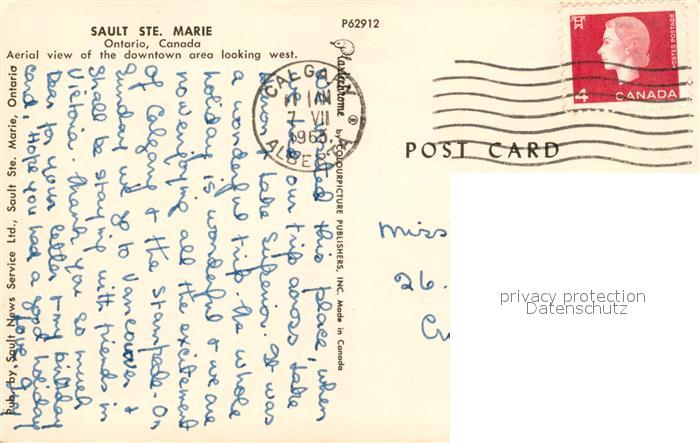 SAULT STE. MARIE
Ontario, Canada
Aerial view of the downtown area looking west.
P62912
Pub. by Sault News Service Ltd., Sault Ste. Marie, Ontario
Plastichrome ® by COLOURPICTURE PUBLISHERS, INC. Made in Canada
CALGARY
1 AM
7 VII
1963
ALBERTA
4
CANADA
POSTES POSTAGE
POST CARD
visited this place, when
our trip across Lake
Superior. It was
a wonderful trip. The whole
holiday is wonderful & we are
now enjoying all the excitement
of Calgary & the Stampede. On
Sunday we go to Vancouver &
shall be staying with friends in
Victoria. Thank you so much
dear for your letter & my birthday
card, Hope you had a good holiday
Love
Miss
26.
privacy protection
Datenschutz